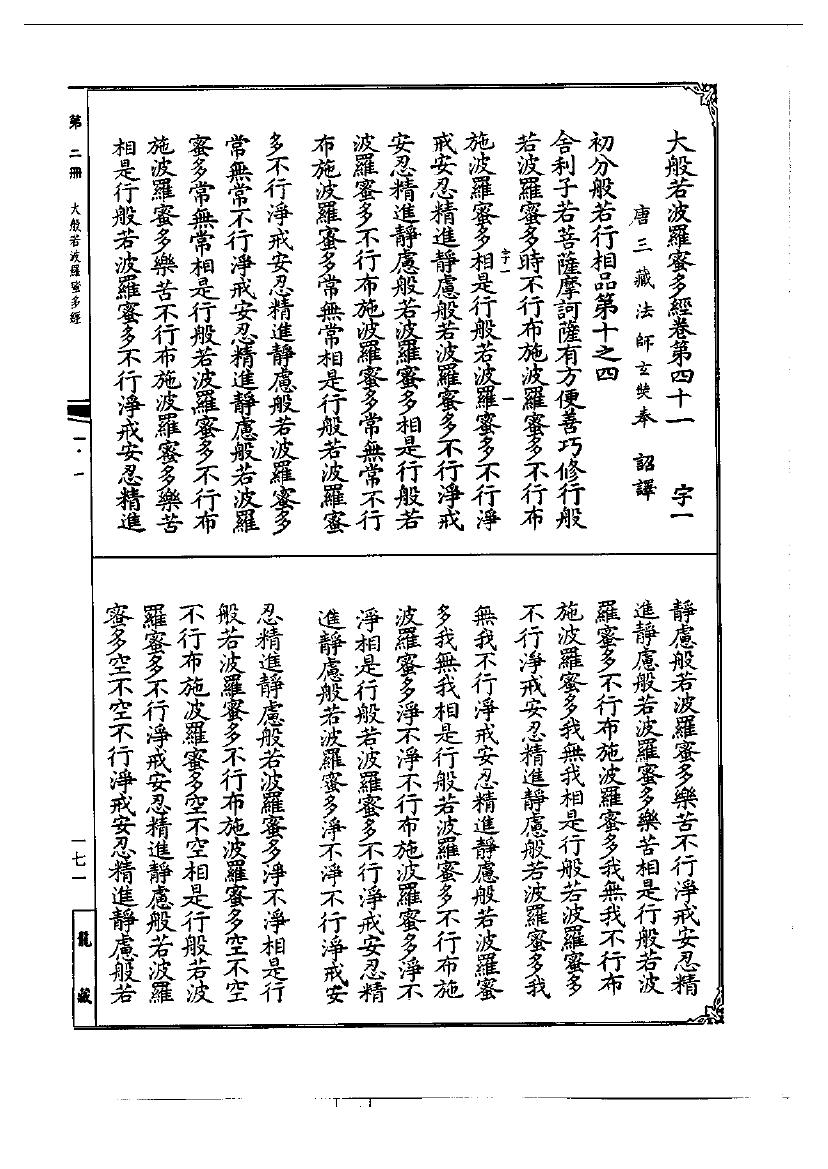 大般若波羅蜜多經卷第四十一　字一
唐三藏法師玄奘奉　詔譯
初分般若行相品第十之四
舍利子若菩薩摩訶薩有方便善巧修行般
若波羅蜜多時不行布施波羅蜜多不行布
施波羅蜜多相是行般若波羅蜜多不行淨
戒安忍精進靜慮般若波羅蜜多不行淨戒
安忍精進靜慮般若波羅蜜多相是行般若
波羅蜜多不行布施波羅蜜多常無常不行
布施波羅蜜多常無常相是行般若波羅蜜
多不行淨戒安忍精進靜慮般若波羅蜜多
常無常不行淨戒安忍精進靜慮般若波羅
蜜多常無常相是行般若波羅蜜多不行布
施波羅蜜多樂苦不行布施波羅蜜多樂苦
相是行般若波羅蜜多不行淨戒安忍精進
靜慮般若波羅蜜多樂苦不行淨戒安忍精
進靜慮般若波羅蜜多樂苦相是行般若波
羅蜜多不行布施波羅蜜多我無我不行布
施波羅蜜多我無我相是行般若波羅蜜多
不行淨戒安忍精進靜慮般若波羅蜜多我
無我不行淨戒安忍精進靜慮般若波羅蜜
多我無我相是行般若波羅蜜多不行布施
波羅蜜多淨不淨不行布施波羅蜜多淨不
淨相是行般若波羅蜜多不行淨戒安忍精
進靜慮般若波羅蜜多淨不淨不行淨戒安
忍精進靜慮般若波羅蜜多淨不淨相是行
般若波羅蜜多不行布施波羅蜜多空不空
不行布施波羅蜜多空不空相是行般若波
羅蜜多不行淨戒安忍精進靜慮般若波羅
蜜多空不空不行淨戒安忍精進靜慮般若
字一
一
第二冊　大般若波羅蜜多經
一・一
一七一
龍藏